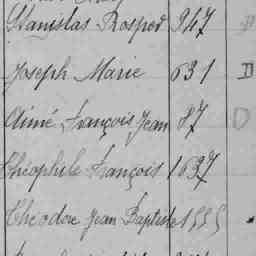 Stanislas Prosper 947
Joseph Marie 631 D
Aimé François Jean 87 D
Théophile François 1637
Théodore Jean Baptiste 1555